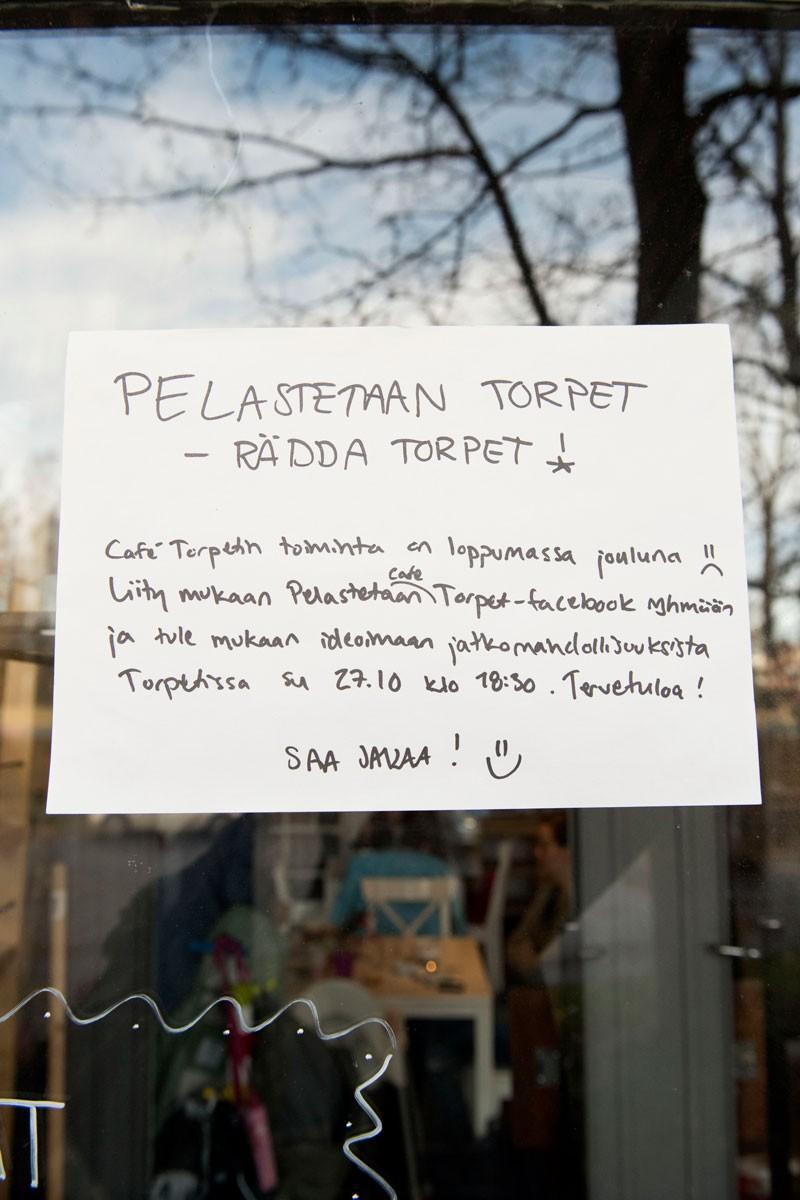 PELASTETAAN TORPET
- RÄDDA TORPET!
Café Torpetin toiminta on loppumassa jouluna :(
Liity mukaan Pelastetaan Café Torpet-facebook ryhmään
ja tule mukaan ideoimaan jatkomahdollisuuksista
Torpetissa su 27.10 klo 18:30. Tervetuloa!
SAA JAKAA! :)